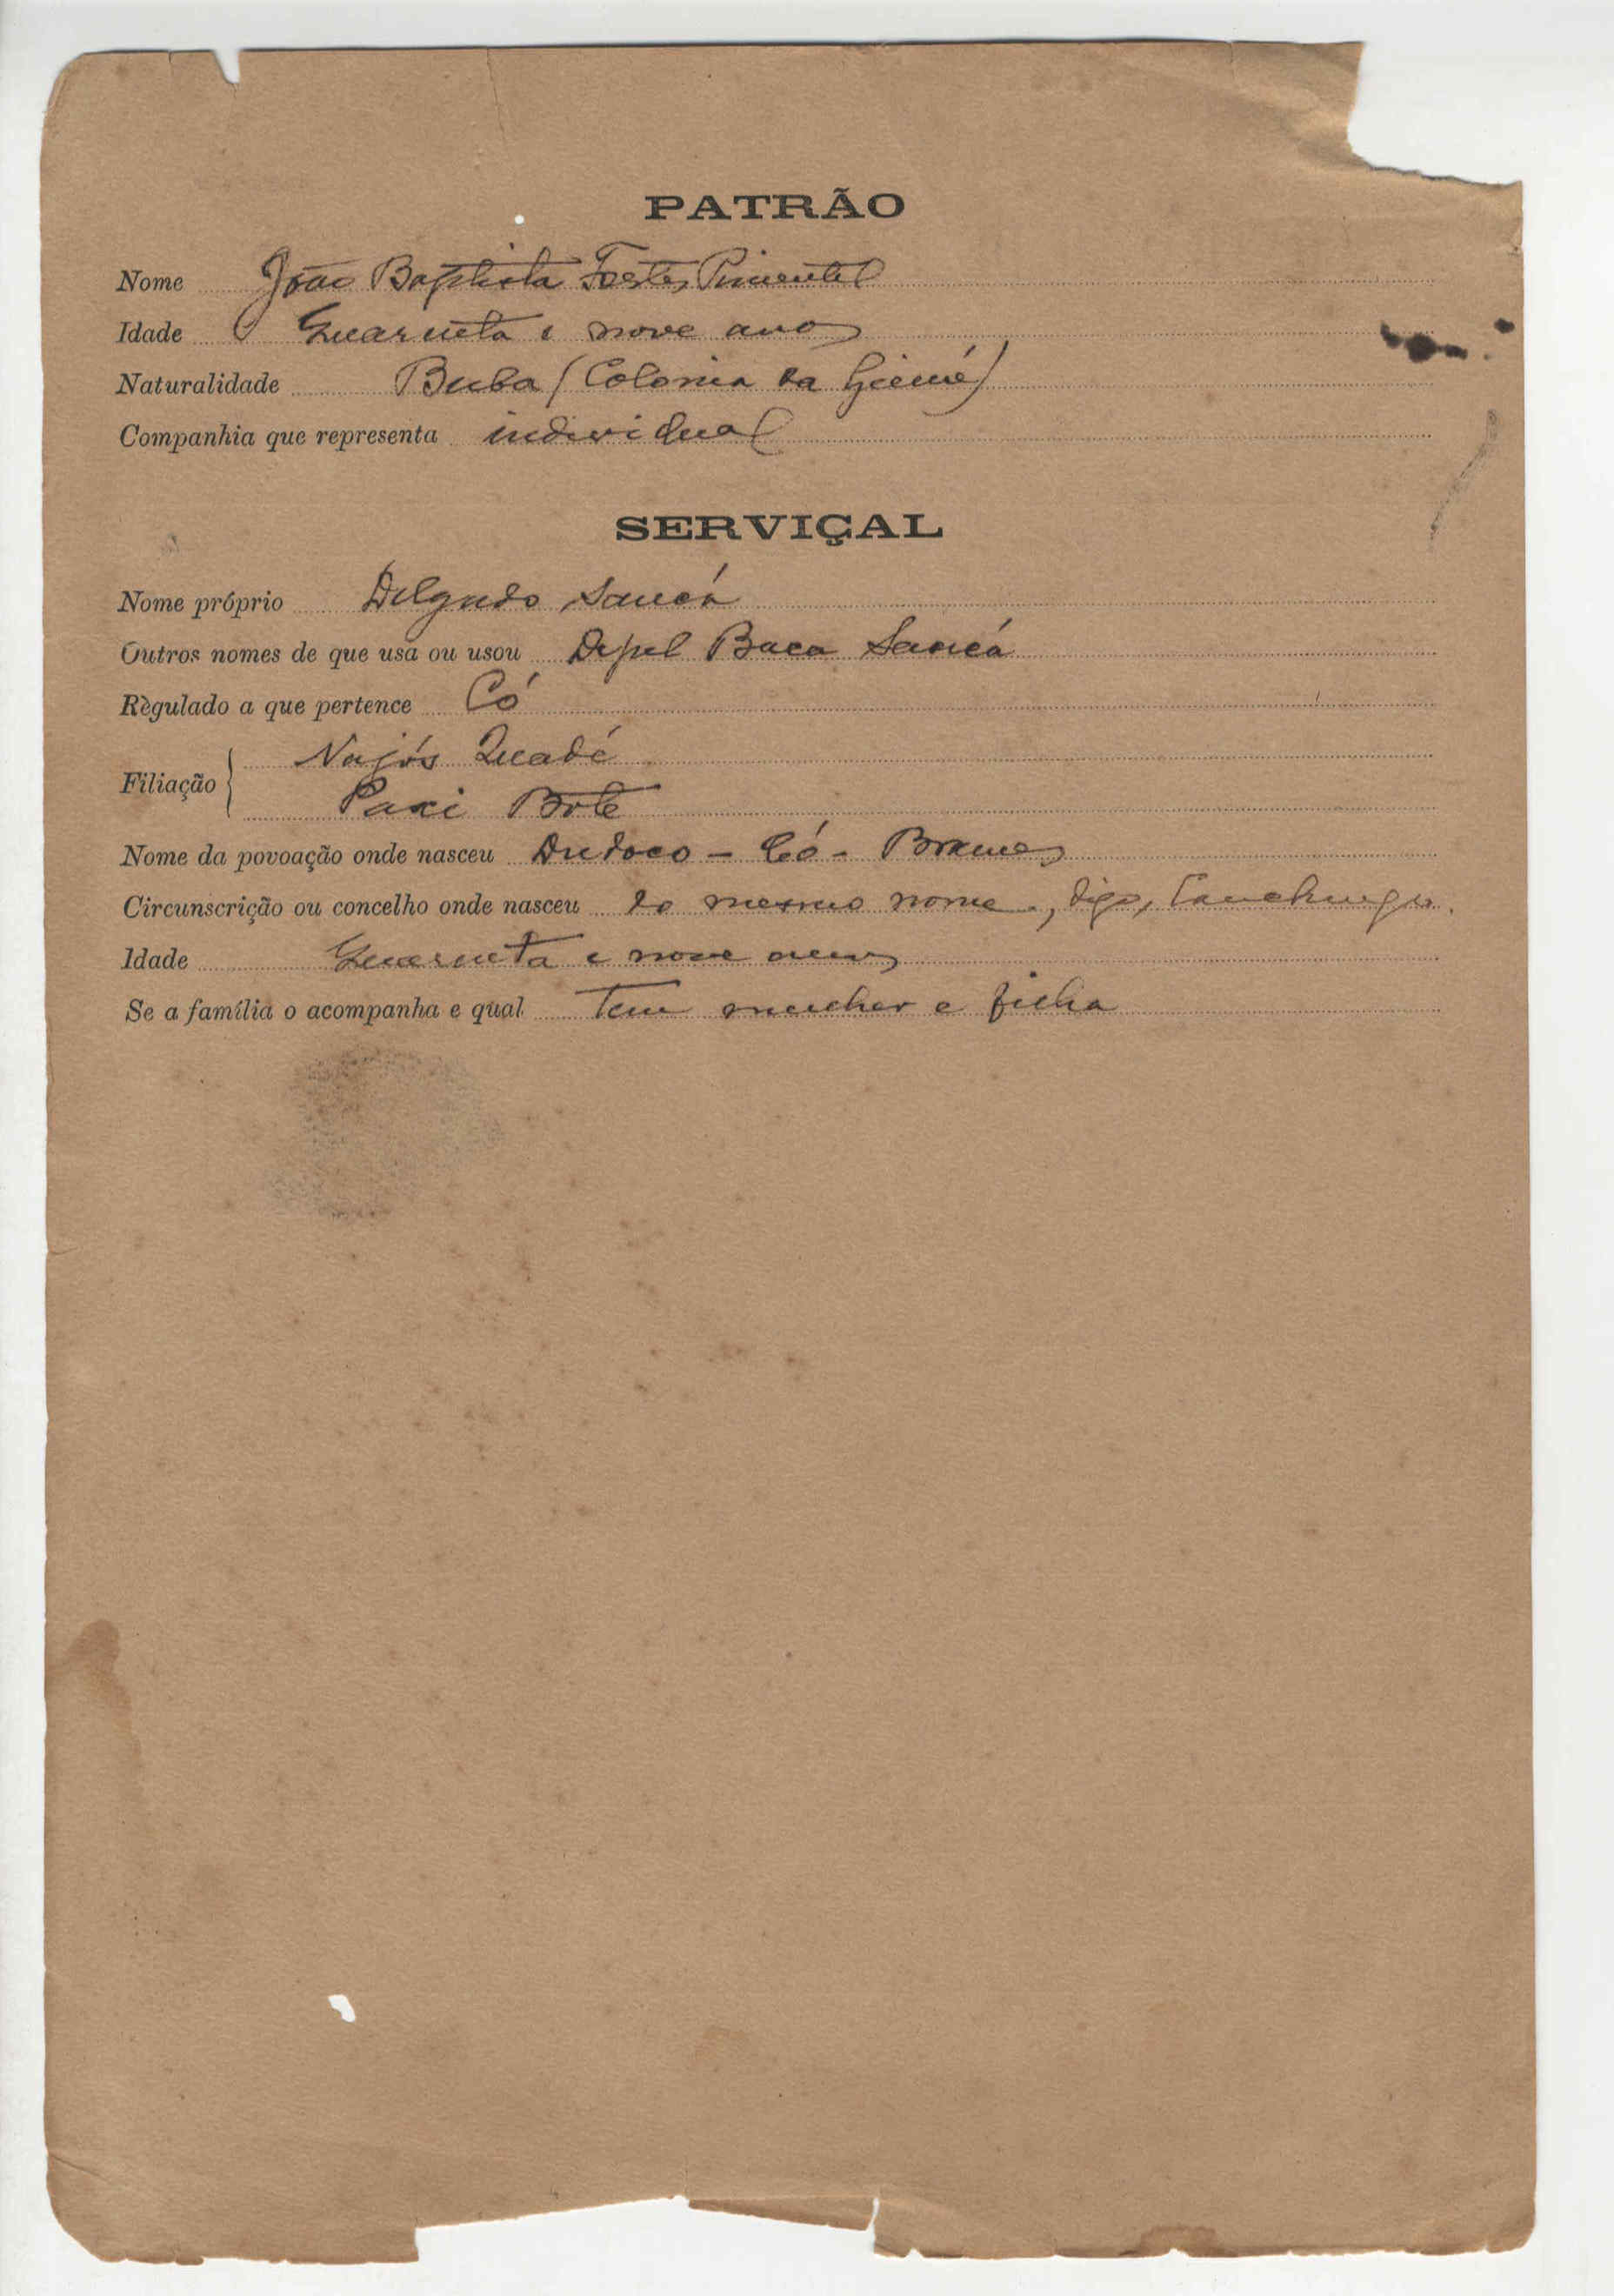 PATRÃO
Nome João Baptista Fortes Pimentel
Idade Quarenta e nove anos
Naturalidade Buba (Colonia da Guiné)
Companhia que representa individual
SERVIÇAL
Nome próprio Delgado Sancá
Outros nomes de que usa ou usou Baca Sancá
Règulado a que pertence Có
Filiação Quadé
Paxi Bote
Nome da povoação onde nasceu - Có - Brames
Circunscrição ou concelho onde nasceu do mesmo nome, digo, Canchungo.
Idade Quarenta e nove anos
Se a família o acompanha e qual Tem mulher e filha